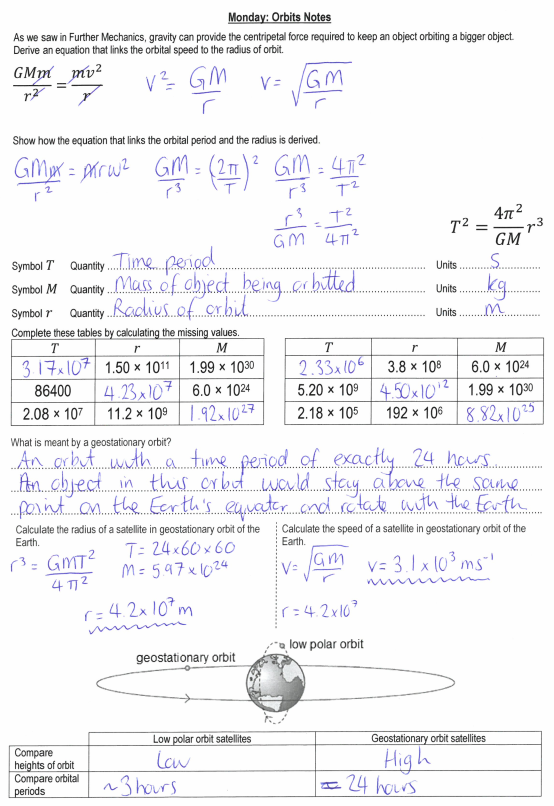 Monday: Orbits Notes
As we saw in Further Mechanics, gravity can provide the centripetal force required to keep an object orbiting a bigger object.
Derive an equation that links the orbital speed to the radius of orbit.
GMm/r² = mv²/r   v² = GM/r   v = √(GM/r)
Show how the equation that links the orbital period and the radius is derived.
GMm/r² = mrω²   GM/r³ = (2π/T)²   GM/r³ = 4π²/T²
r³/GM = T²/4π²   T² = 4π²/GM r³
Symbol T Quantity Time period Units s
Symbol M Quantity Mass of object being orbitted Units kg
Symbol r Quantity Radius of orbit Units m
Complete these tables by calculating the missing values.
T r M T r M
3.17×10⁷ 1.50 × 10¹¹ 1.99 × 10³⁰ 2.33×10⁶ 3.8 × 10⁸ 6.0 × 10²⁴
86400 4.23×10⁷ 6.0 × 10²⁴ 5.20 × 10⁹ 4.50×10¹² 1.99 × 10³⁰
2.08 × 10⁷ 11.2 × 10⁹ 1.92×10²⁷ 2.18 × 10⁵ 192 × 10⁶ 8.82×10²⁵
What is meant by a geostationary orbit?
An orbit with a time period of exactly 24 hours.
An object in this orbit would stay above the same
point on the Earth's equator and rotate with the Earth
Calculate the radius of a satellite in geostationary orbit of the
Earth.
r³ = GMT²/4π²   T = 24×60×60
M = 5.97×10²⁴
r = 4.2×10⁷ m
Calculate the speed of a satellite in geostationary orbit of the
Earth.
v = √(GM/r)   v = 3.1×10³ ms⁻¹
r = 4.2×10⁷
low polar orbit
geostationary orbit
Low polar orbit satellites Geostationary orbit satellites
Compare
heights of orbit
Low High
Compare orbital
periods
~3 hours = 24 hours